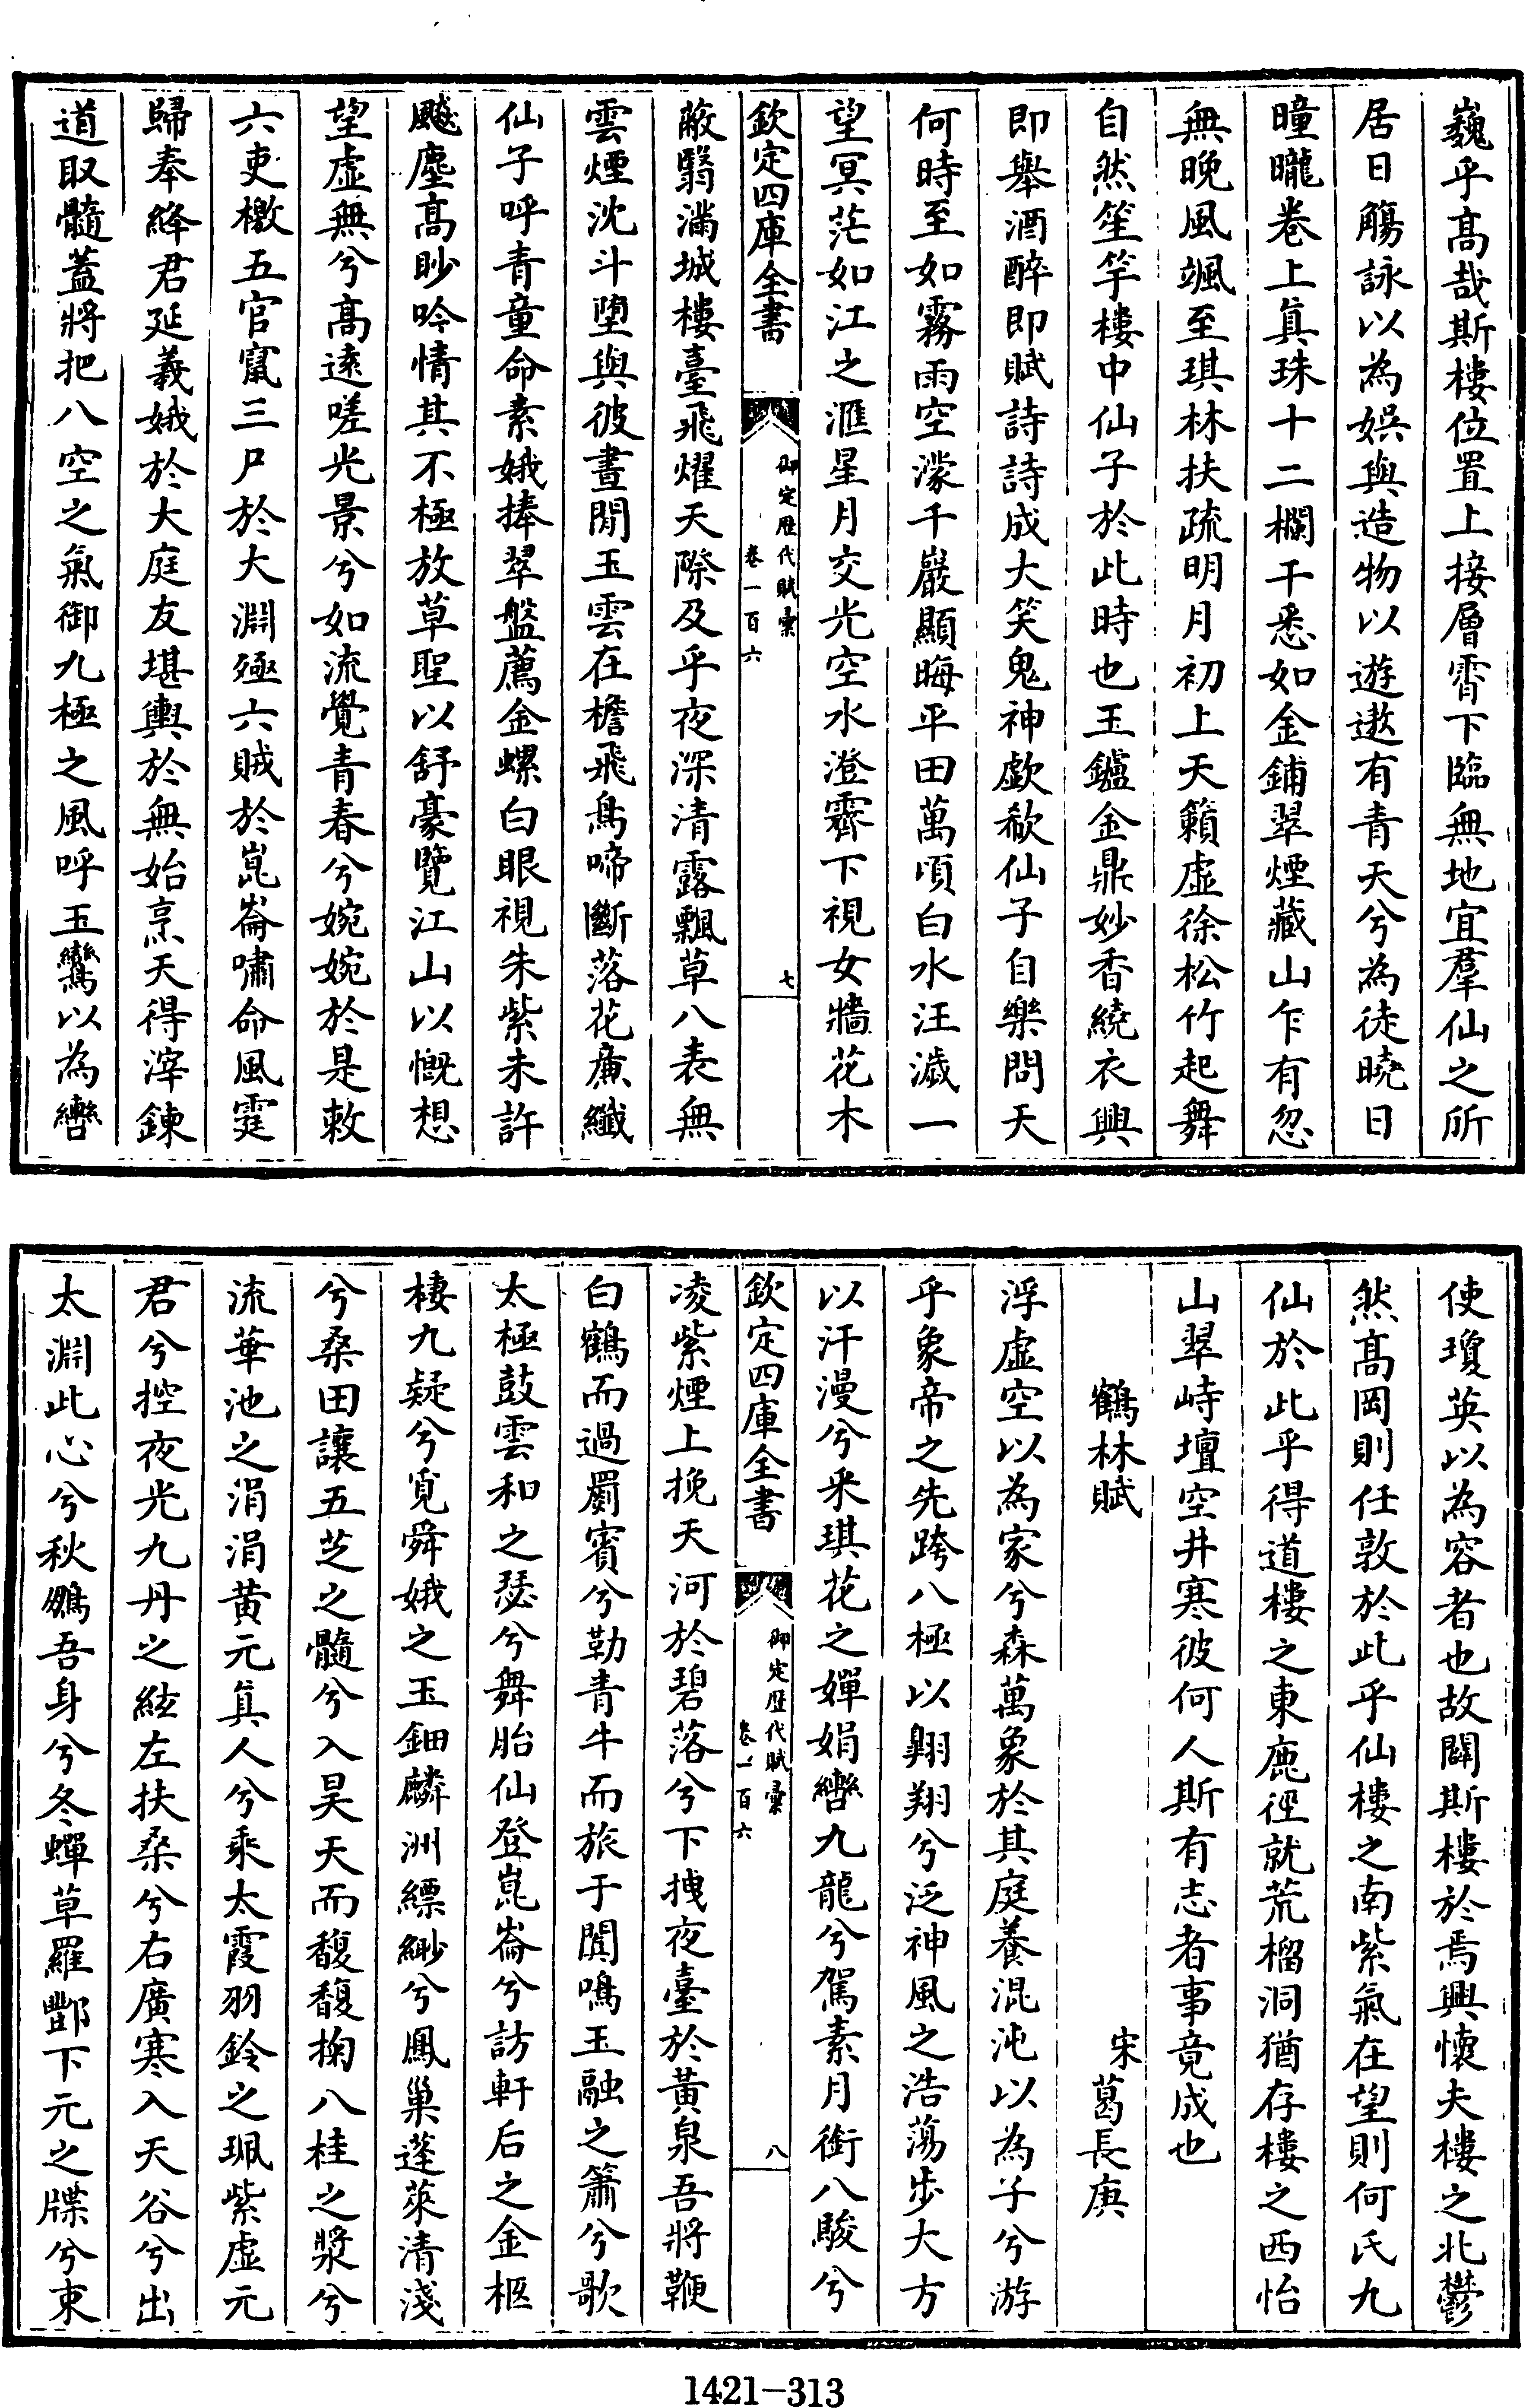 巍乎髙哉斯樓位置上接層霄下臨無地宜羣仙之所
居日觴詠以為娯與造物以遊遨有青天兮為徒曉日
曈曨卷上真珠十二欄干悉如金鋪翠煙藏山乍有忽
無晚風颯至琪林扶疏明月初上天籟虚徐松竹起舞
自然笙竽樓中仙子於此時也玉鑪金鼎妙香繞衣興
即舉酒醉即賦詩詩成大笑鬼神歔欷仙子自樂問天
何時至如霧雨空濛千巖顯晦平田萬頃白水汪濊一
望冥茫如江之滙星月交光空水澄霽下視女牆花木
欽定四庫全書
御定歴代賦彙
卷一百六
七
蔽翳滿城樓臺飛燿天際及乎夜深清露飄草八表無
雲煙沈斗墮與彼晝閒玉雲在檐飛鳥啼斷落花㢘纖
仙子呼青童命素娥捧翠盤薦金螺白眼視朱紫未許
飈塵髙眇吟情其不極放草聖以舒豪覽江山以慨想
望虚無兮髙逺嗟光景兮如流覺青春兮婉婉於是敕
六吏檄五官竄三尸於大淵殛六賊於崑崙嘯命風霆
歸奉絳君延義娥於大庭友堪輿於無始烹天得滓鍊
道取髓蓋將把八空之氣御九極之風呼玉鸞以為轡
使瓊英以為容者也故闢斯樓於焉興懷夫樓之北鬱
然髙岡則任敦於此乎仙樓之南紫氣在望則何氏九
仙於此乎得道樓之東鹿徑就荒榴洞猶存樓之西怡
山翠峙壇空井寒彼何人斯有志者事竟成也
鶴林賦
宋葛長庚
浮虚空以為家兮森萬象於其庭養混沌以為子兮游
乎象帝之先跨八極以翺翔兮泛神風之浩蕩步大方
以汗漫兮采琪花之嬋娟轡九龍兮駕素月銜八駿兮
欽定四庫全書
御定歴代賦彙
卷一百六
八
凌紫煙上挽天河於碧落兮下拽夜臺於黄泉吾將鞭
白鶴而過罽賓兮勒青牛而旅于闐鳴玉融之簫兮歌
太極鼓雲和之瑟兮舞胎仙登崑崙兮訪軒后之金柩
棲九疑兮覓舜娥之玉鈿麟洲縹緲兮鳳巢蓬萊清淺
兮桑田讓五芝之髓兮入昊天而馥馥掬八桂之漿兮
流華池之涓涓黄元真人兮乘太霞羽鈴之珮紫虚元
君兮控夜光九丹之絃左扶桑兮右廣寒入天谷兮出
太淵此心兮秋鵰吾身兮冬蟬草羅酆下元之牒兮束
1421-313